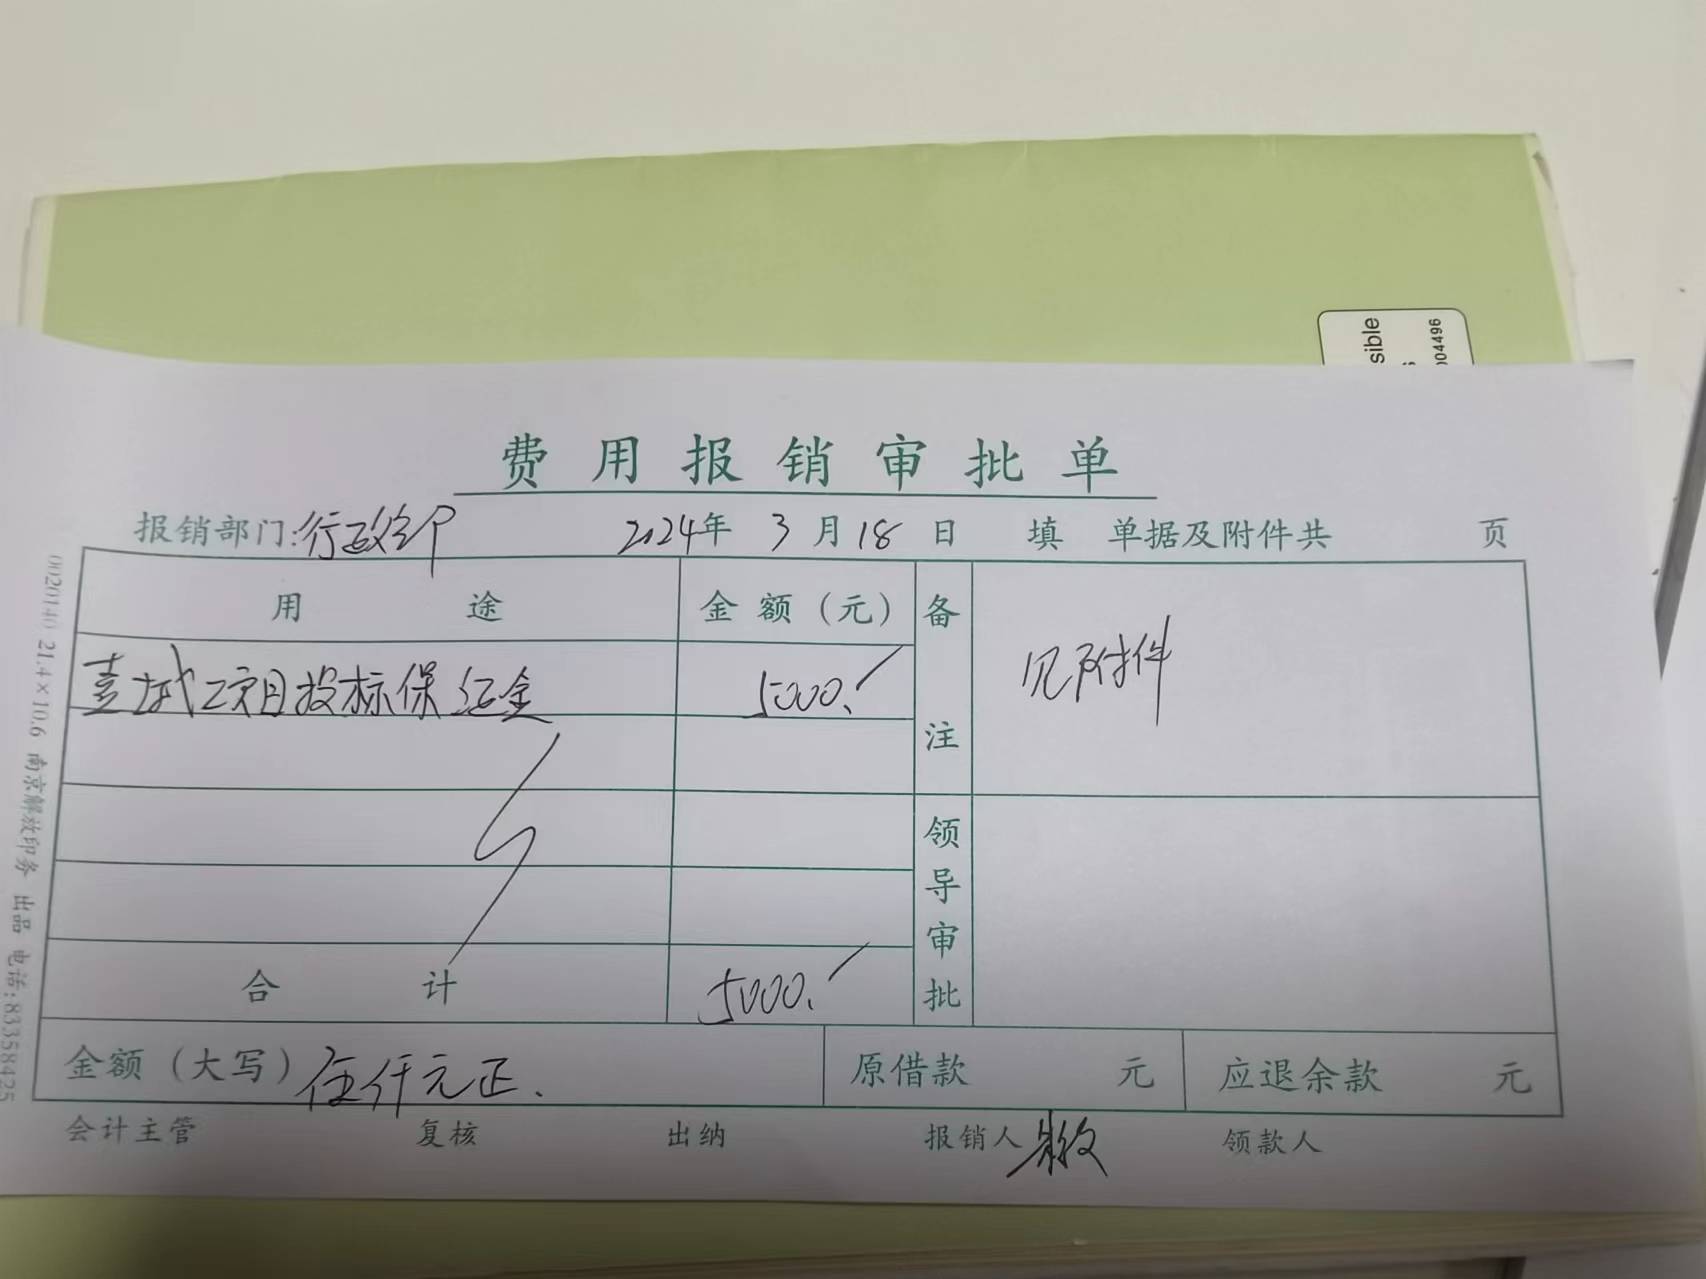 sible
004496
费用报销审批单
报销部门:行政部 2024年 3月18日 填 单据及附件共 页
用途 金额(元) 备注 见附件
项目投标保证金 5000.
领导审批
合计 5000.
金额(大写) 伍仟元正. 原借款 元 应退余款 元
会计主管 复核 出纳 报销人 领款人
0020140 21.4×10.6 南京解放印务 出品 电话:83358425